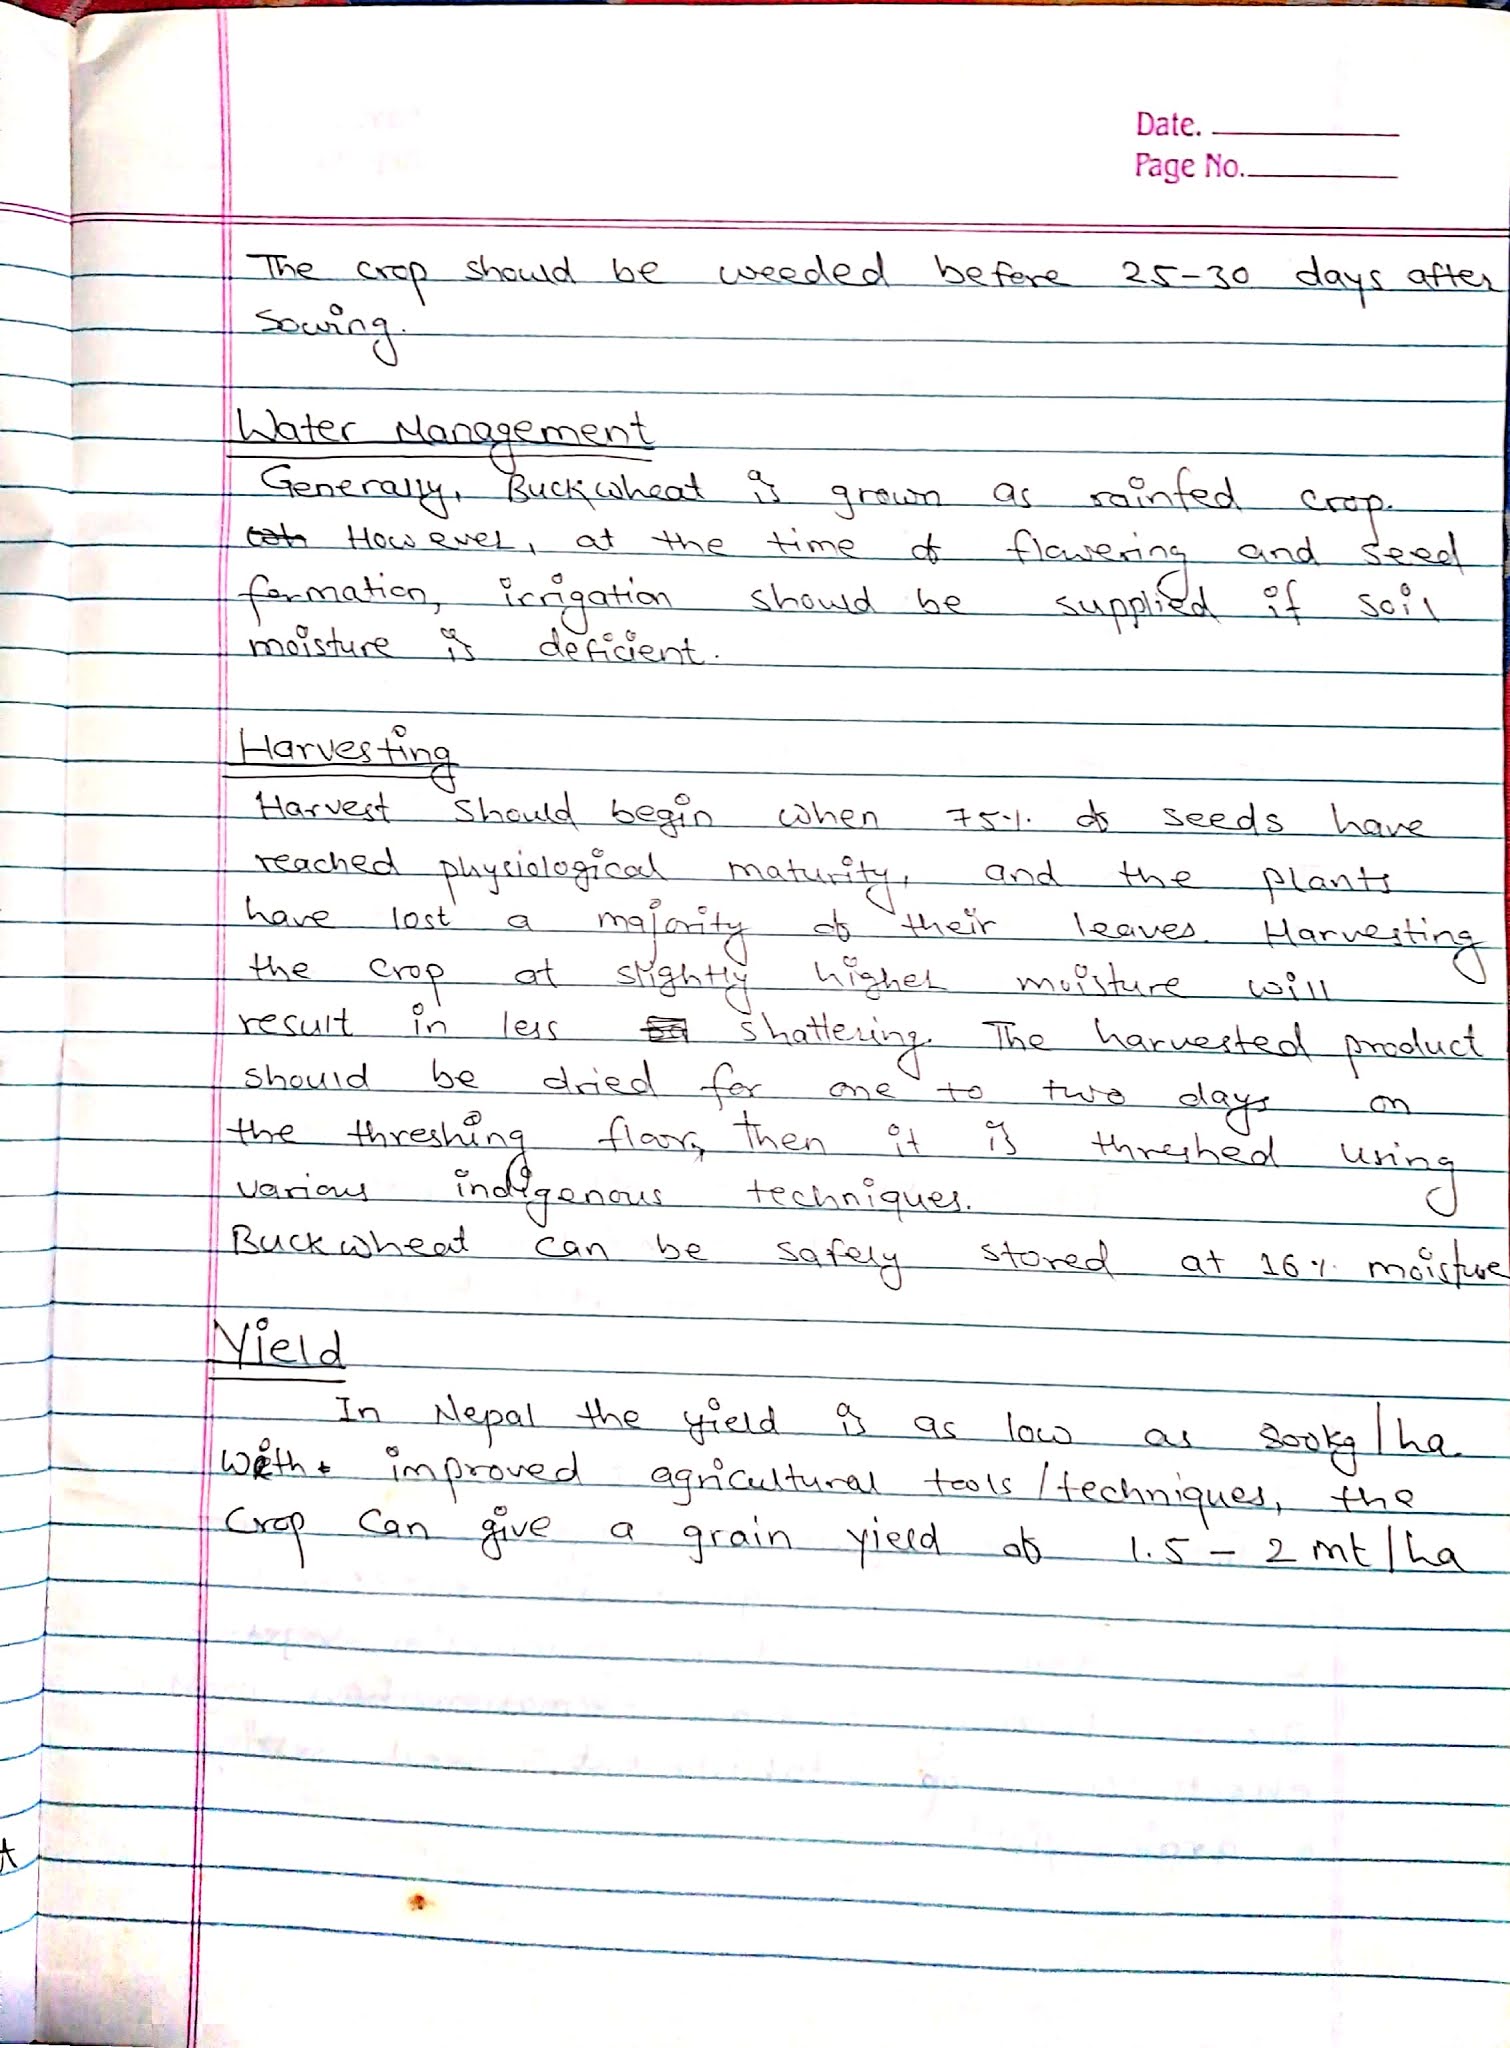 Date.
Page No.
The crop should be weeded before 25-30 days after
sowing.
Water Management
Generally, Buckwheat is grown as rainfed crop.
However, at the time of flowering and seed
formation, irrigation should be supplied if soil
moisture is deficient.
Harvesting
Harvest should begin when 75% of seeds have
reached physiological maturity, and the plants
have lost a majority of their leaves. Harvesting
the crop at slightly higher moisture will
result in less shattering. The harvested product
should be dried for one to two days on
the threshing floor, then it is threshed using
various indigenous techniques.
Buckwheat can be safely stored at 16% moisture
Yield
In Nepal the yield is as low as kg/ha.
With improved agricultural tools/techniques, the
Crop can give a grain yield of 1.5 - 2 mt/ha